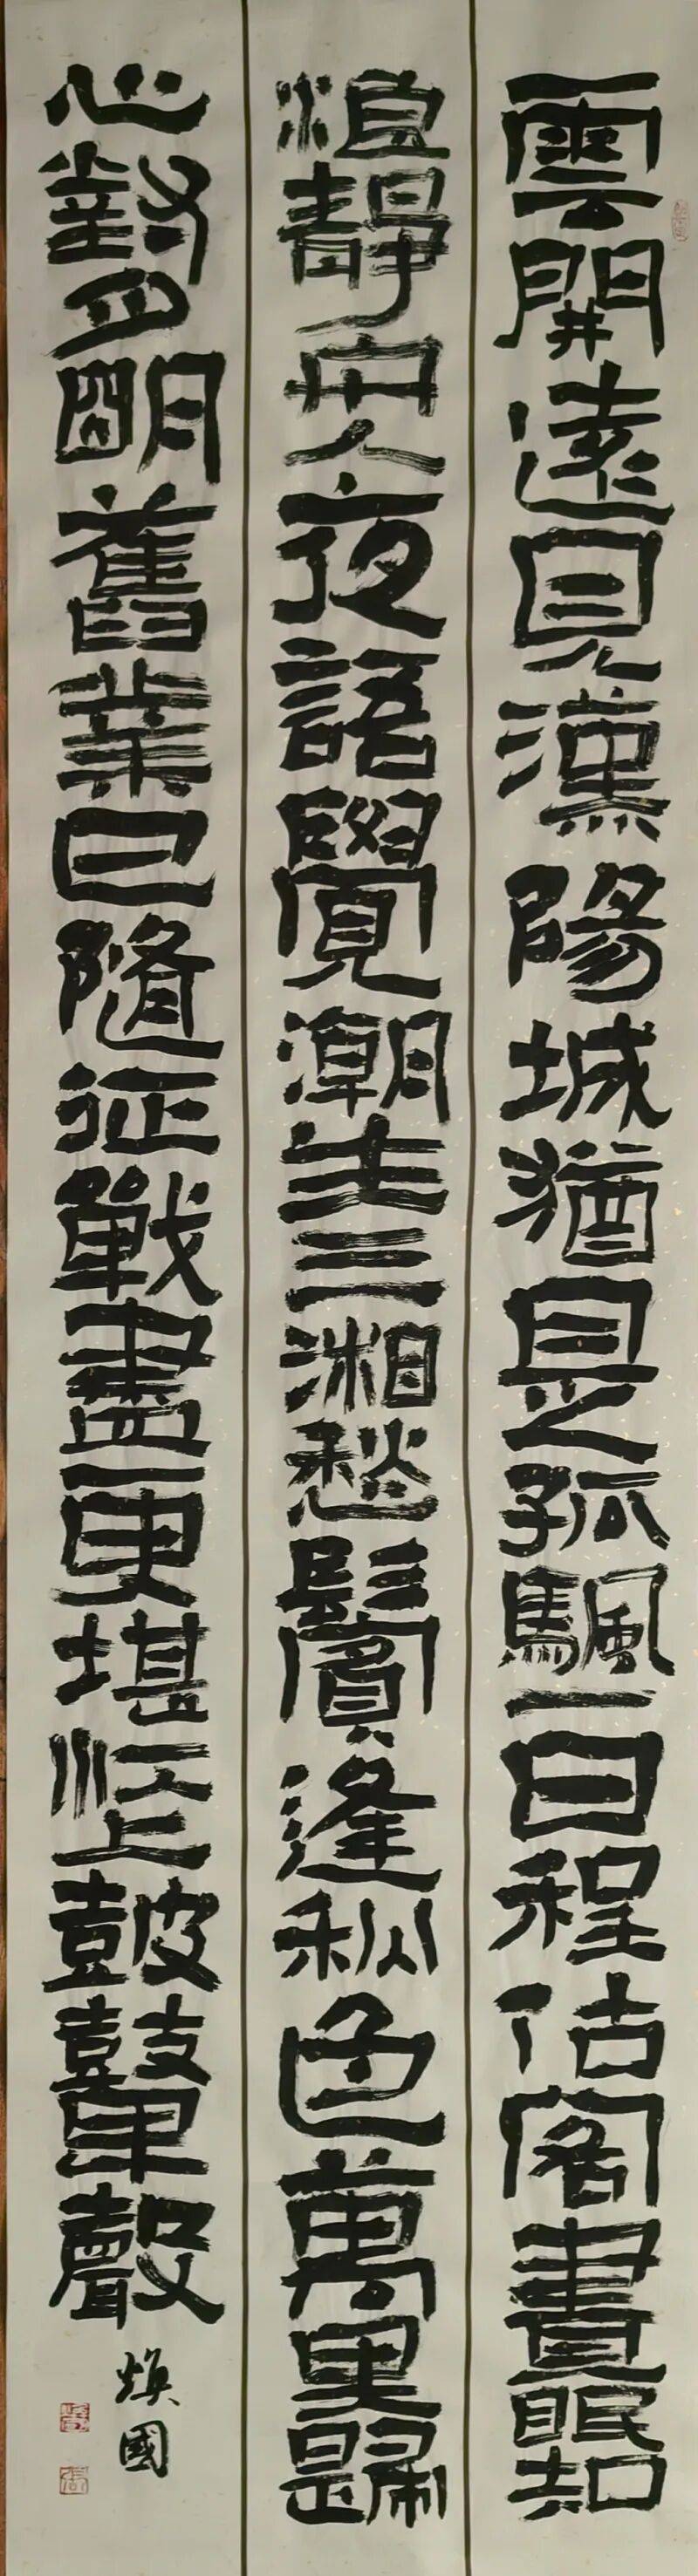 雲開遠見漢陽城猶是孤颿一日程估客晝眠知
浪靜舟人夜語覺潮生三湘愁鬢逢秋色萬里歸
心對月明舊業已隨征戰盡更堪江上鼓鼙聲
煥國